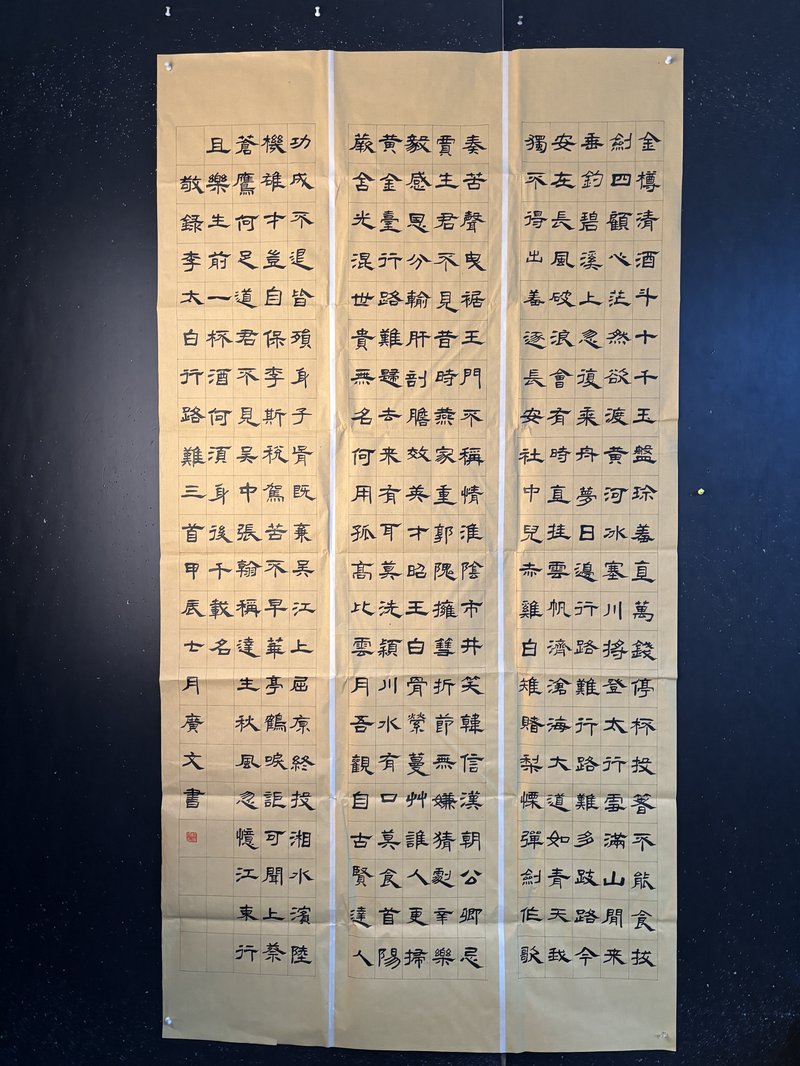 金樽清酒斗十千玉盤珎羞直萬錢停杯投箸不能食拔
劍四顧心茫然欲渡黃河冰塞川將登太行雪滿山閒來
垂釣碧溪上忽復乘舟夢日邊行路難行路難多歧路今
安在長風破浪會有時直挂雲帆濟滄海大道如青天我
獨不得出羞逐長安社中兒赤雞白雉賭梨慄彈劍作歌
奏苦聲曳裾王門不稱情淮陰市井笑韓信漢朝公卿忌
賈生君不見昔時燕家重郭隗擁篲折節無嫌猜劇辛樂
毅感恩分輸肝剖膽效英才昭王白骨縈蔓艸誰人更掃
黃金臺行路難歸去来有耳莫洗潁川水有口莫食首陽
蕨含光混世貴無名何用孤高比雲月吾觀自古賢達人
功成不退皆殞身子胥既棄吳江上屈原終投湘水濱陸
機雄才豈自保李斯稅駕苦不早華亭鶴唳詎可聞上蔡
蒼鷹何足道君不見吳中張翰稱達生秋風忽憶江東行
且樂生前一杯酒何須身後千載名
敬錄李太白行路難三首甲辰七月廣文書